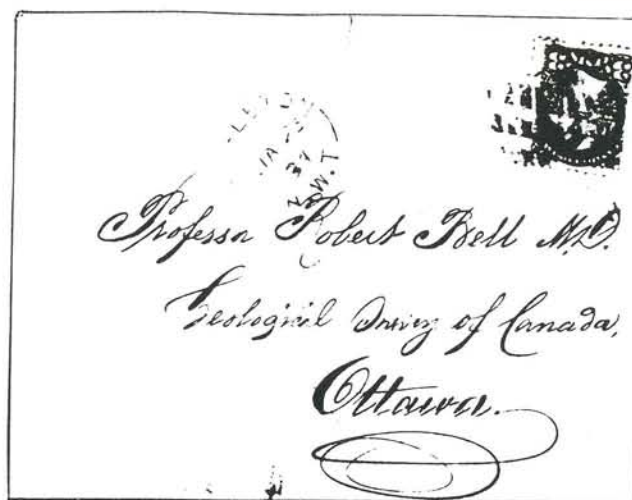 Professor Robert Bell M.D.
Geological Survey of Canada,
Ottawa.